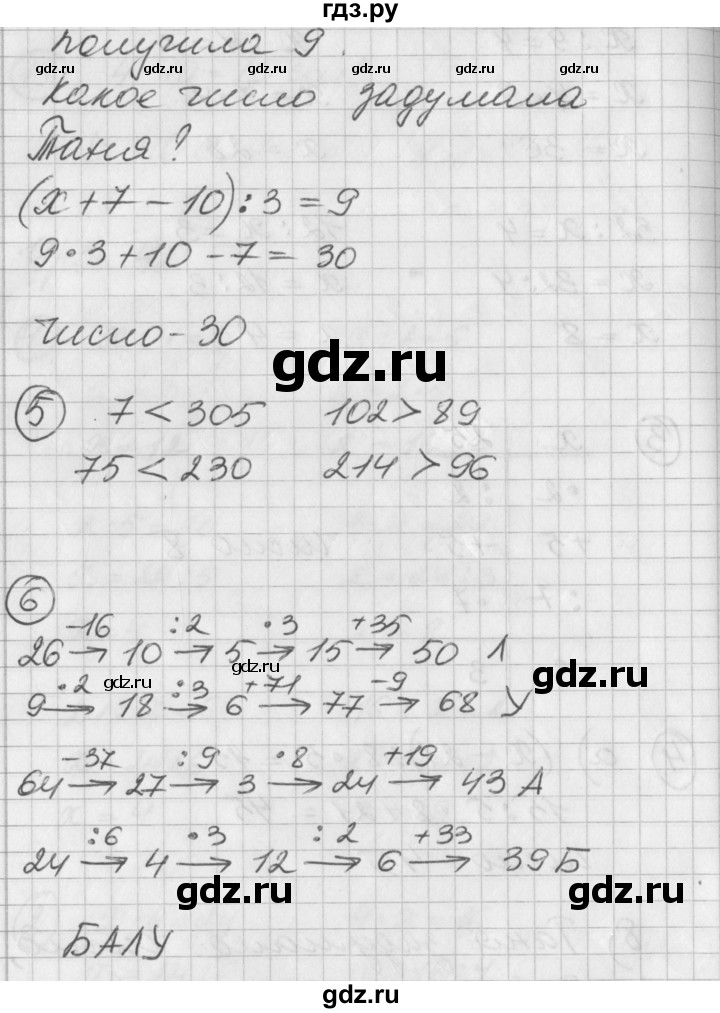 гдз.ру
получила 9.
gdz.ru gdz.ru gdz.ru gdz.ru gdz.ru
Какое число задумала
Таня?
(х+7-10):3=9
9·3+10-7=30
число-30
gdz.ru
5 7<305 102>89
75<230 214>96
6
-16 :2 ·3 +35
26→10→5→15→50 Л
gdz.ru
·2 :3 +71 -9
9→18→6→77→68 У
gdz.ru gdz.ru gdz.ru gdz.ru
-37 :9 ·8 +19
64→27→3→24→43 А
:6 ·3 :2 +33
24→4→12→6→39 Б
gdz.ru gdz.ru
БАЛУ
gdz.ru